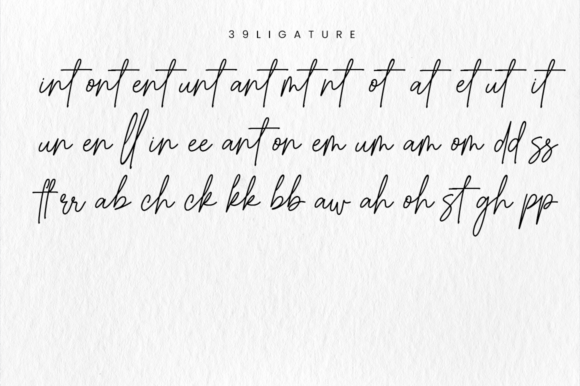 39LIGATURE
int ont ent unt ant mt nt ot at et ut it
un en ll in ee ant on em um am om dd ss
tt rr ab ch ck kk bb aw ah oh st gh pp